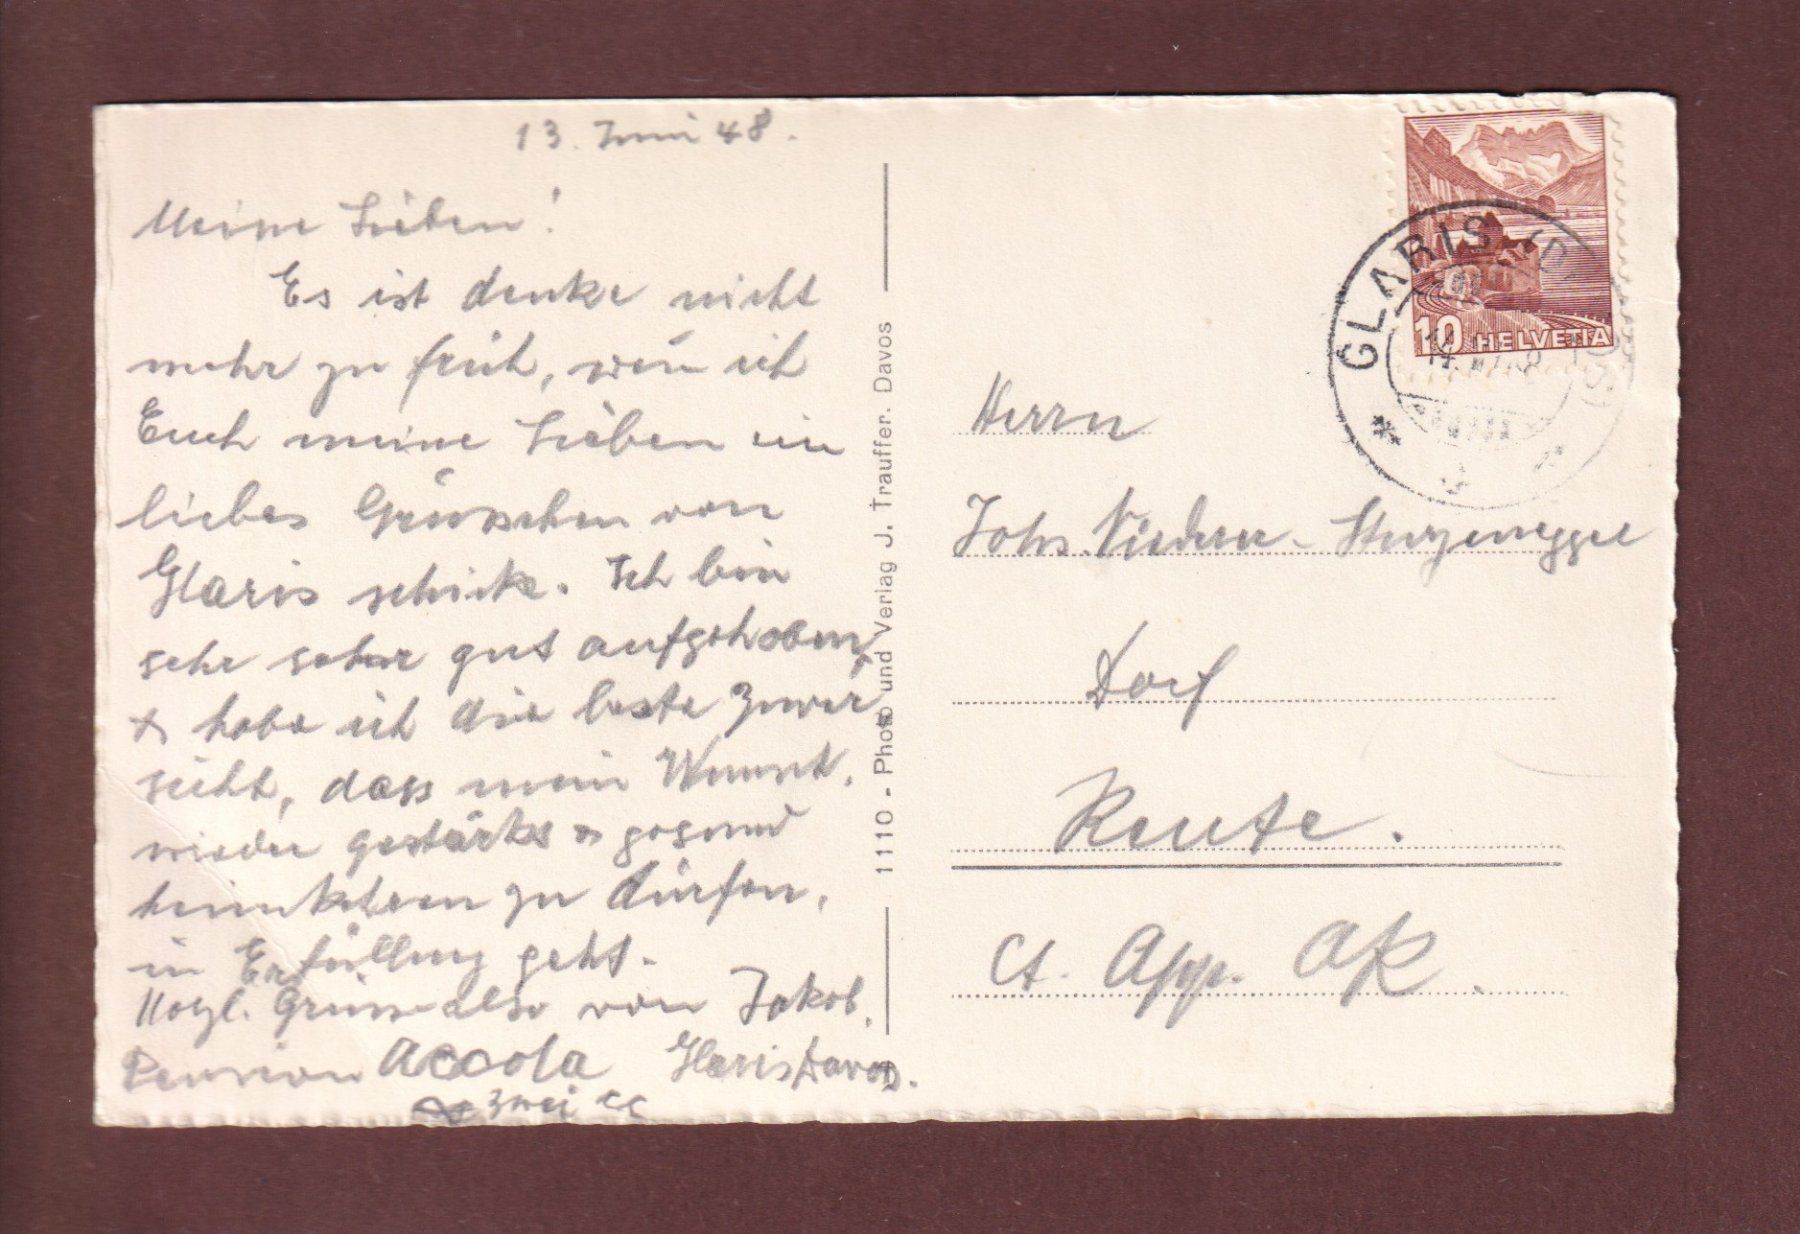 13. Juni 48.
Meine Lieben!
Es ist denke nicht
mehr zu früh, wen̄ ich
Euch meine Lieben ein
liebes Grüsschen von
Glaris schicke. Ich bin
sehr sehr gut aufgehoben,
& habe ich die beste Zuver
sicht, dass mein Wunsch,
wieder gestärkt & gesund
heimkehren zu dürfen,
in Erfüllung geht.
Herzl. Grüsse also von Jakob.
Pension Accola Glaris Davos.
zwei cc
1110 - Photo und Verlag J. Trauffer. Davos
GLARIS
10 HELVETIA
Herrn
Johs. Niederer-Sturzenegger
Dorf
Reute.
Ct. App. AR.